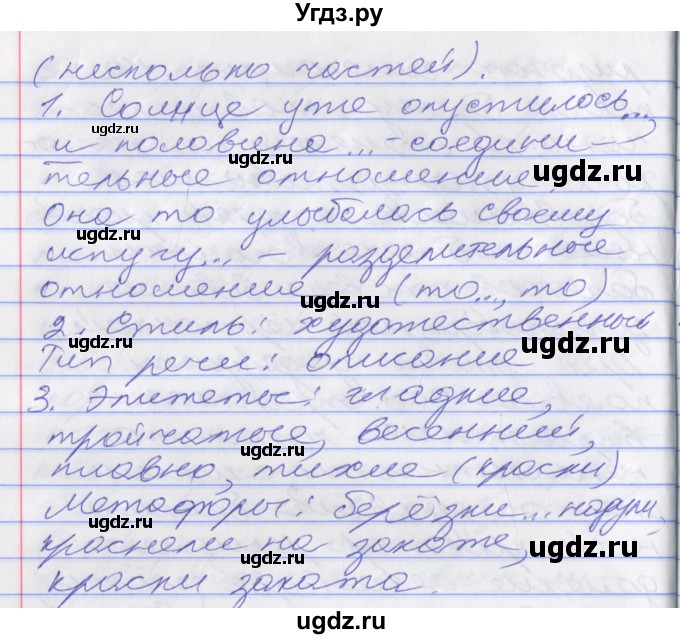 Угдз.ру
(несколько частей).
1. Солнце уже опустилось...
и половина... – соедини-
тельные отношения.
Она то улыбалась своему
испугу... – разделительные
отношения (то..., то)
2. Стиль: художественный
Тип речи: описание
3. Эпитеты: гладкие,
тройчатые, весенний,
плавно, тихие (краски)
Метафоры: берёзки... нарум.
краснели на закате,
краски заката.
ugdz.ru
ugdz.ru
ugdz.ru
ugdz.ru
ugdz.ru
ugdz.ru
ugdz.ru
ugdz.ru
ugdz.ru
ugdz.ru
ugdz.ru
ugdz.ru